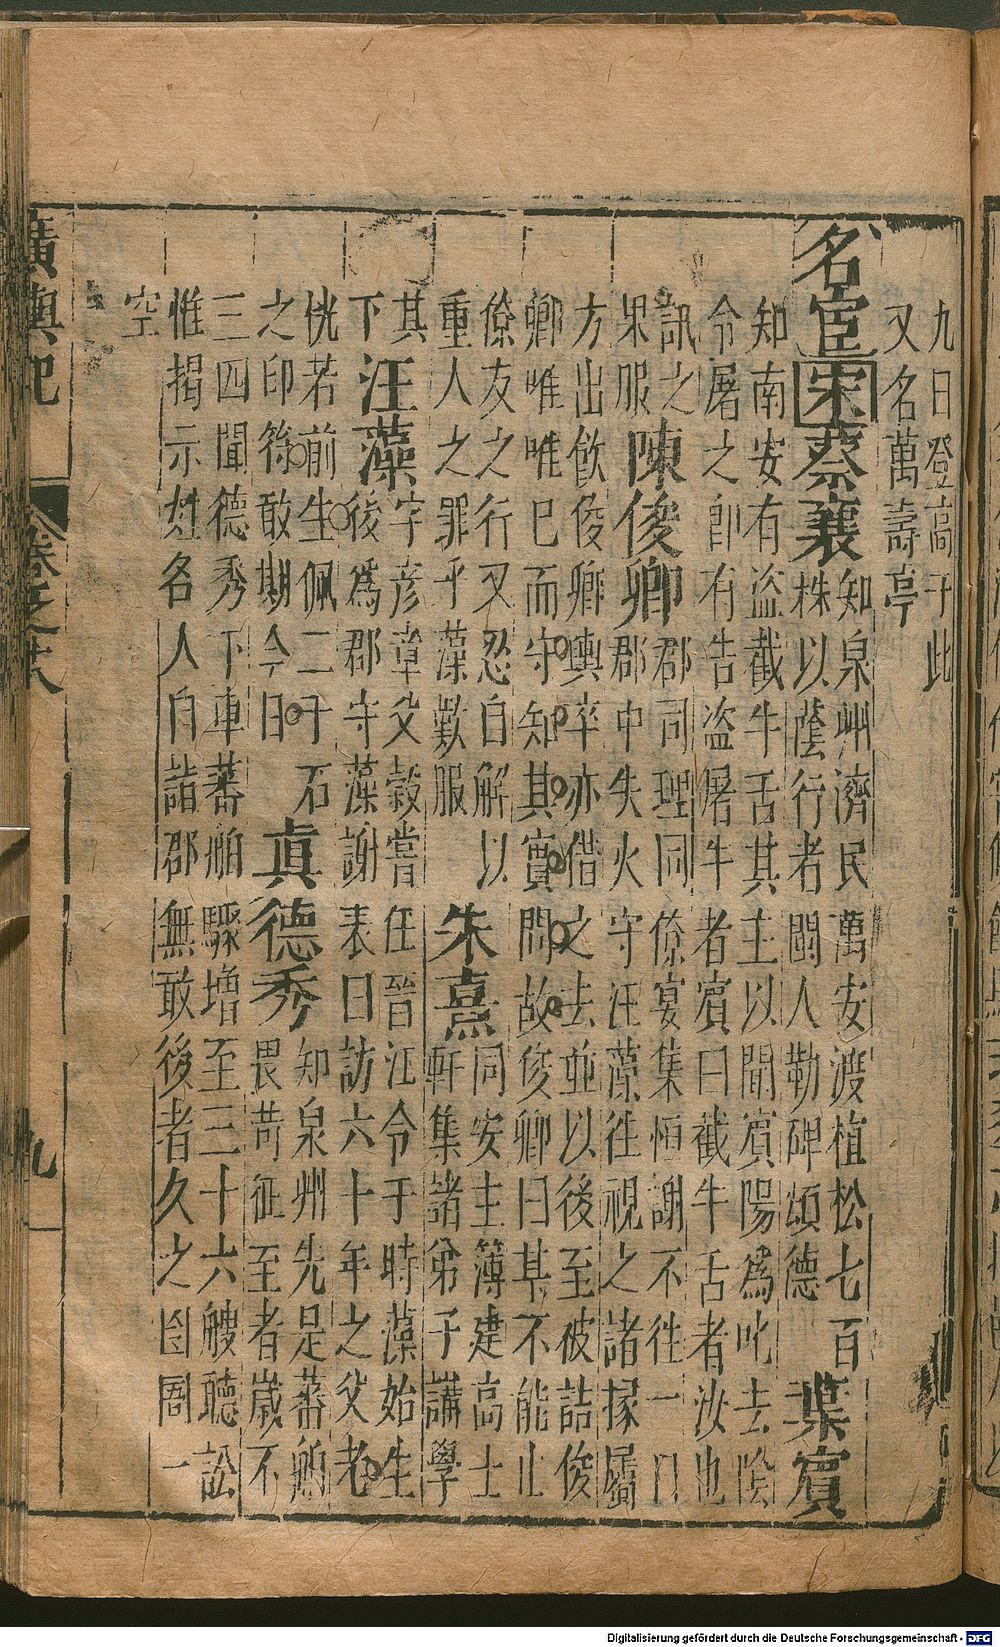 九日登高于此
又名萬壽亭
名宦 宋 蔡襄
知泉州濟民萬安渡植松七百
株以蔭行者閩人勒碑頌德
葉賓
知南安有盜截牛舌其主以聞賓陽爲叱去陰
令屠之卽有告盜屠牛者賓曰截牛舌者汝也
訊之
果服
陳俊卿
郡司理同僚宴集恒謝不往一日
郡中失火守汪藻往視之諸掾屬
方出飲俊卿輿卒亦借之去並以後至被詰俊
卿唯唯已而守知其實問故俊卿曰某不能止
僚友之行又忍自解以
重人之罪乎藻歎服
朱熹
同安主簿建高士
軒集諸弟子講學
其
下
汪藻
字彥章父穀嘗任晉江令于時藻始生
後爲郡守藻謝表曰訪六十年之父老
恍若前生佩二千石
之印符敢期今日
真德秀
知泉州先是蕃舶
畏苛征至者歲不
三四聞德秀下車蕃舶驟增至三十六艘聽訟
惟揭示姓名人自詣郡無敢後者久之囹圄一
空
廣輿記
卷之
九
Digitalisierung gefördert durch die Deutsche Forschungsgemeinschaft - DFG